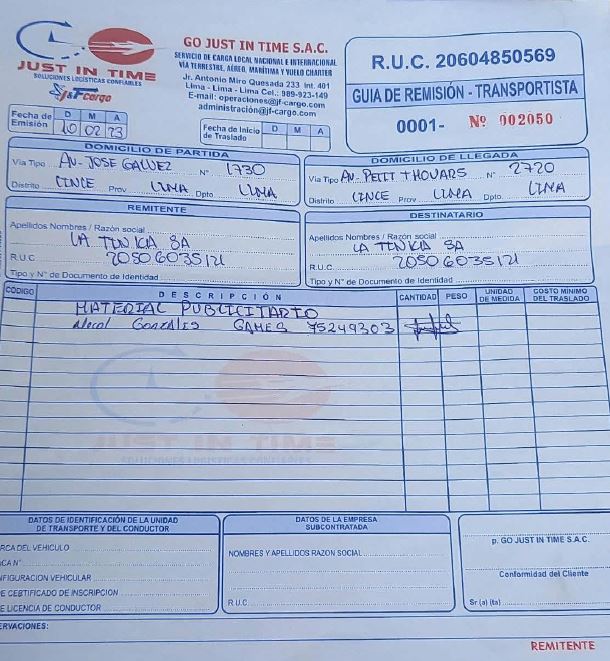 JUST IN TIME
SOLUCIONES LOGÍSTICAS CONFIABLES
J&F Cargo
GO JUST IN TIME S.A.C.
SERVICIO DE CARGA LOCAL NACIONAL E INTERNACIONAL
VÍA TERRESTRE, AÉREO, MARÍTIMA Y VUELO CHARTER
Jr. Antonio Miro Quesada 233 Int. 401
Lima - Lima - Lima Cel.: 989-923-149
E-mail: operaciones@jf-cargo.com
administración@jf-cargo.com
R.U.C. 20604850569
GUIA DE REMISIÓN - TRANSPORTISTA
0001- Nº 002050
Fecha de Emisión D M A
10 02 23
Fecha de Inicio de Traslado D M A
DOMICILIO DE PARTIDA
Vía Tipo AV- JOSE GALVEZ N° 1730
Distrito LINCE Prov LIMA Dpto LIMA
DOMICILIO DE LLEGADA
Vía Tipo AV. PETIT THOUARS N° 2720
Distrito LINCE Prov LIMA Dpto LIMA
REMITENTE
Apellidos Nombres / Razón social
LA TINKA SA
R.U.C. 20506035121
Tipo y N° de Documento de Identidad
DESTINATARIO
Apellidos Nombres / Razón social
LA TINKA SA
R.U.C. 20506035121
Tipo y N° de Documento de Identidad
CÓDIGO DESCRIPCIÓN CANTIDAD PESO UNIDAD DE MEDIDA COSTO MÍNIMO DEL TRASLADO
MATERIAL PUBLICITARIO
Gonzales GAMES 75249303
JUST IN TIME
SOLUCIONES LOGÍSTICAS CONFIABLES
DATOS DE IDENTIFICACIÓN DE LA UNIDAD
DE TRANSPORTE Y DEL CONDUCTOR
RCA DEL VEHICULO
ACA N°
NFIGURACION VEHICULAR
E CERTIFICADO DE INSCRIPCION
E LICENCIA DE CONDUCTOR
DATOS DE LA EMPRESA
SUBCONTRATADA
NOMBRES Y APELLIDOS RAZON SOCIAL
R.U.C.
p. GO JUST IN TIME S.A.C.
Conformidad del Cliente
Sr.(a) (ta)
ERVACIONES:
REMITENTE